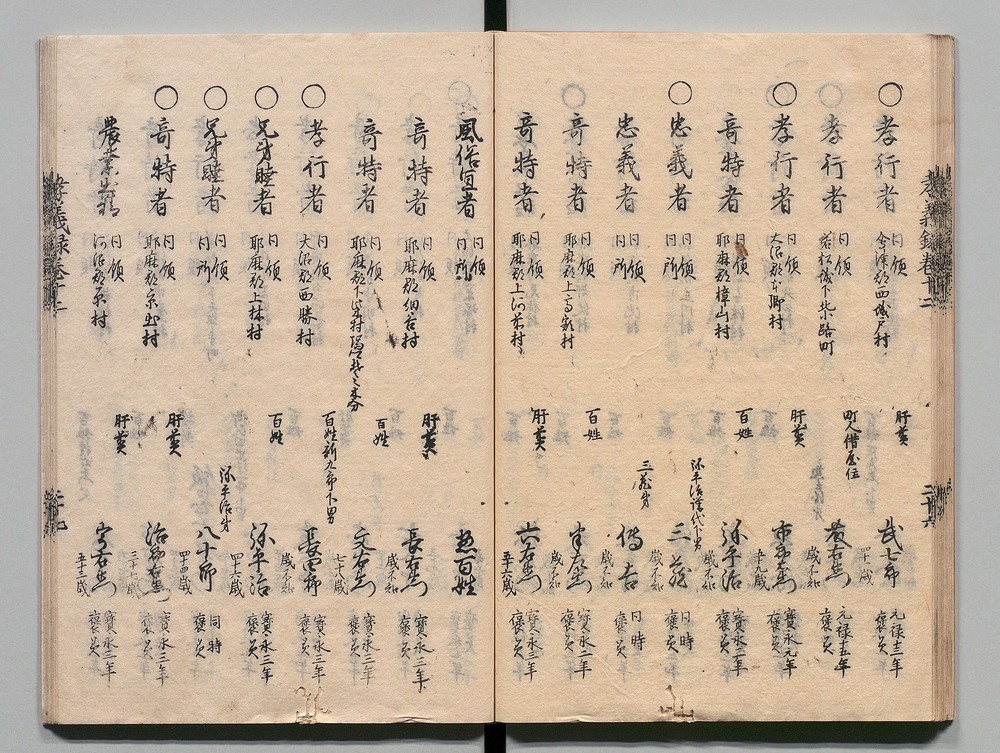 孝義録巻十二
二十六
○孝行者 同領 会津郡西城戸村 肝煎 武七郎 四十一歳 元禄十三年 褒美
○孝行者 同領 若松城下柴路町 町人借屋住 歳不知 元禄十五年 褒美
○孝行者 同領 大沼郡本郷村 肝煎 五十九歳 寳永元年 褒美
奇特者 同領 耶麻郡樟山村 百姓 弥平治 歳不知 寳永二年 褒美
○忠義者 同領 同所 弥平治譜代下男 三蔵 歳不知 同時 褒美
忠義者 同領 同所 三蔵弟 傳吉 歳不知 同時 褒美
○奇特者 同領 耶麻郡上高額村 百姓 歳不知 寳永二年 褒美
奇特者 同領 耶麻郡上河前村 肝煎 六右衛門 五十六歳 寳永三年 褒美
○風俗宜者 同領 同所 惣百姓
奇特者 同領 耶麻郡細谷村 肝煎 長右衛門 歳不知 寳永三年 褒美
奇特者 同領 耶麻郡下 百姓 文右衛門 七十歳 寳永三年 褒美
○孝行者 同領 大沼郡西勝村 百姓新九郎下男 長四郎 歳不知 寳永三年 褒美
○兄弟睦者 同領 耶麻郡上林村 百姓 弥平治 四十六歳 寳永三年 褒美
○兄弟睦者 同領 同所 弥平治弟 八十郎 四十四歳 同時 褒美
○奇特者 同領 耶麻郡 肝煎 治郎右衛門 三十七歳 寳永三年 褒美
農業出精 同領 河沼郡 村 肝煎 五十三歳 寳永三年 褒美
孝義録巻十二
二十七